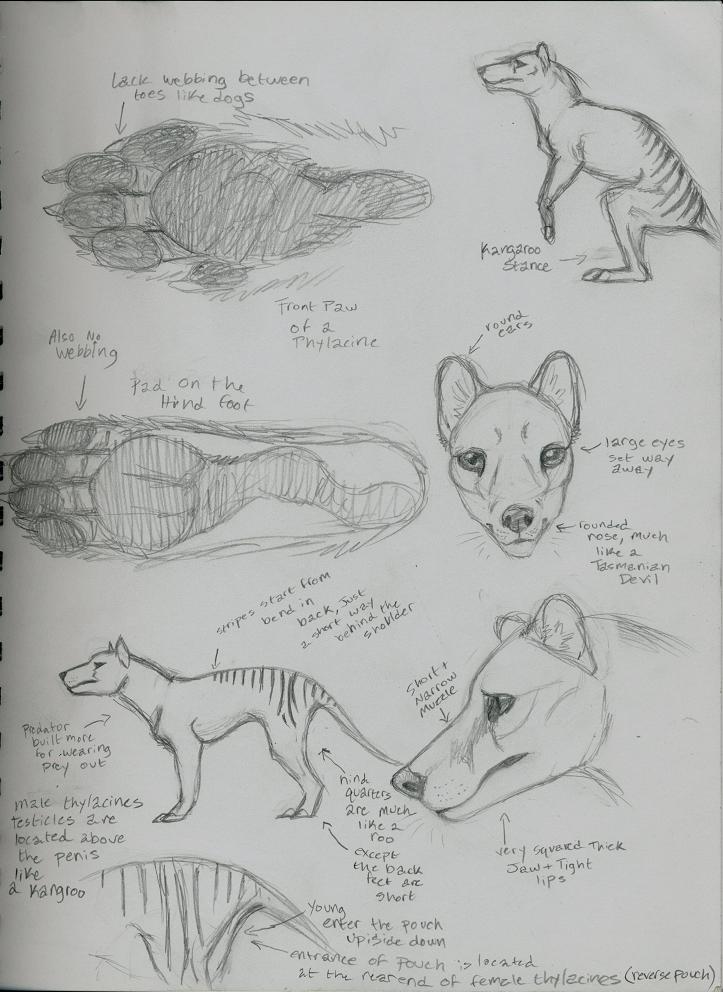 Lack webbing between
toes like dogs
Kangaroo
Stance
Front Paw
of a
Thylacine
Also No
webbing
Pad on the
Hind foot
round
ears
large eyes
set way
away
rounded
nose, much
like a
Tasmanian
Devil
stripes start from
bend in
back, just
a short way
behind the
sholder
short +
Narrow
muzzle
Predator
built more
for wearing
prey out
hind
quarters
are much
like a
roo
except
the back
feet are
short
male thylacines
testicles are
located above
the penis
like
a kangroo
very squared Thick
Jaw + Tight
lips
Young
enter the pouch
upiside down
entrance of pouch is located
at the rearend of female thylacines (reverse pouch)